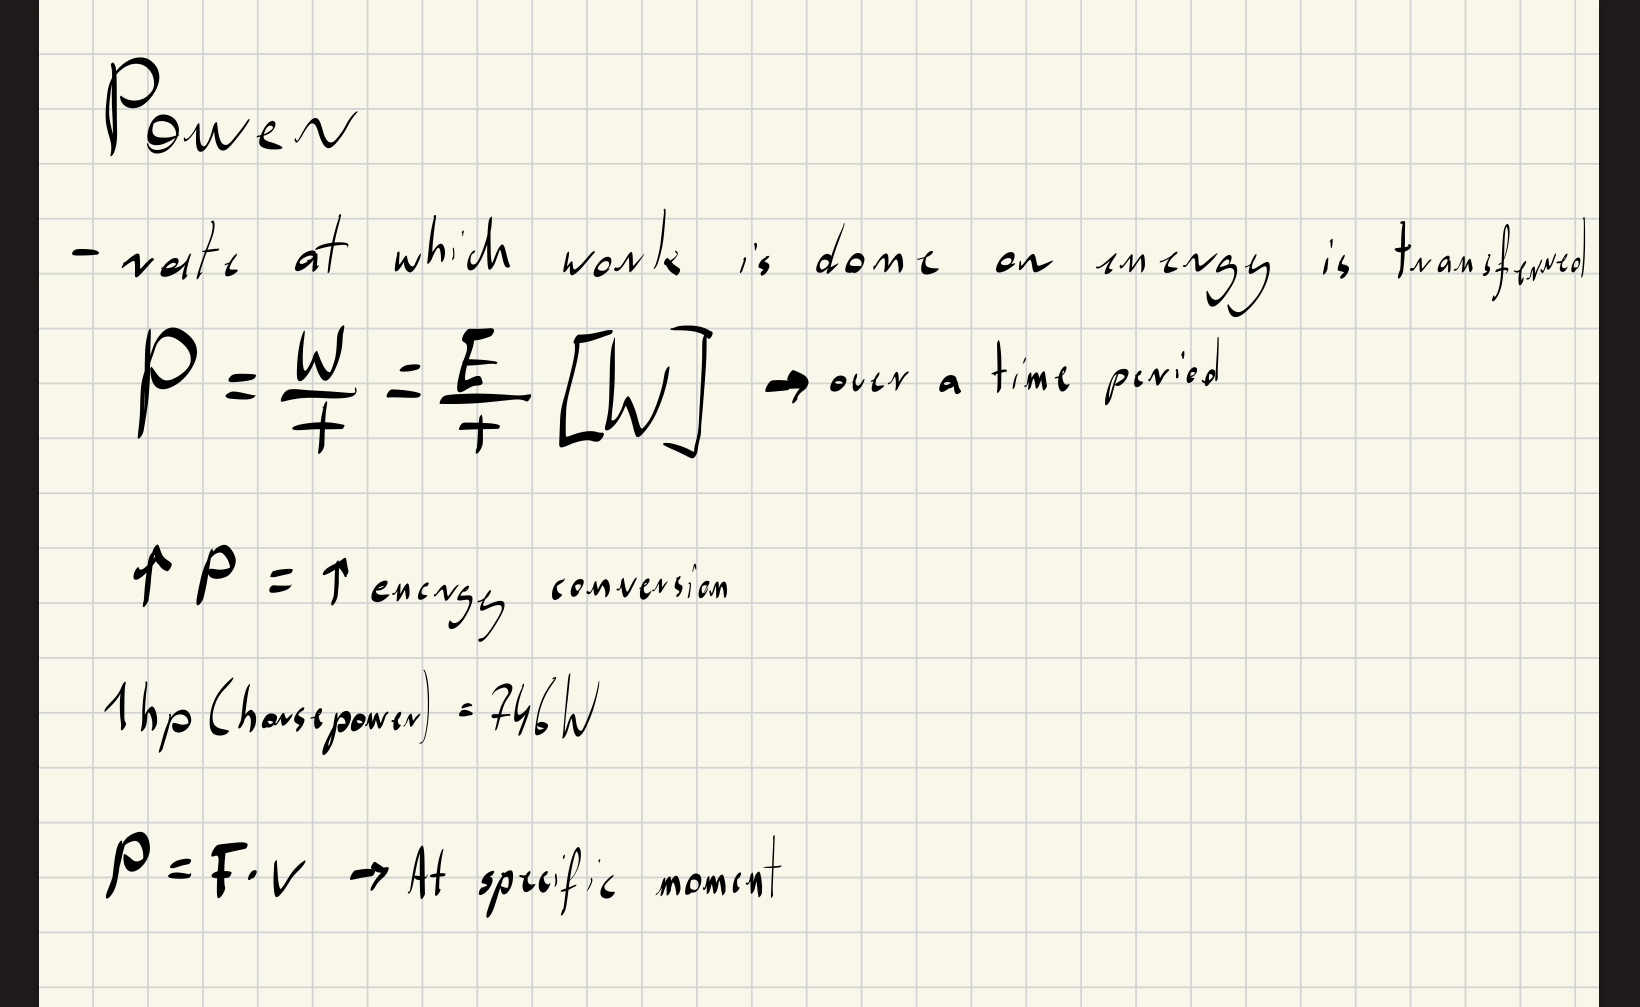 Power
- rate at which work is done or energy is transferred
P = W/t = E/t [W] → over a time period
↑ P = ↑ energy conversion
1hp (horsepower) = 746W
P = F·v → At specific moment